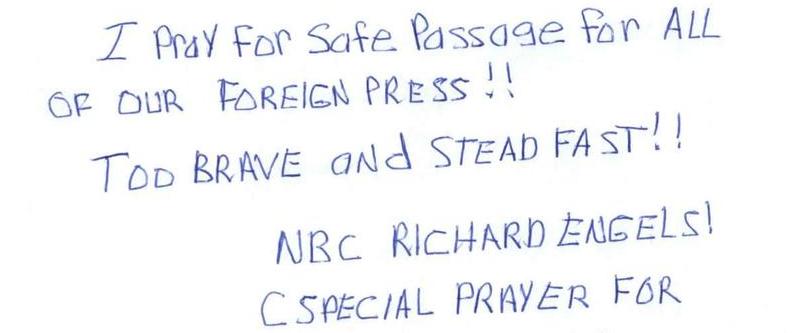 I Pray For Safe Passage for ALL
OF OUR FOREIGN PRESS!!
TOO BRAVE and STEAD FAST!!
NBC RICHARD ENGELS!
(SPECIAL PRAYER FOR